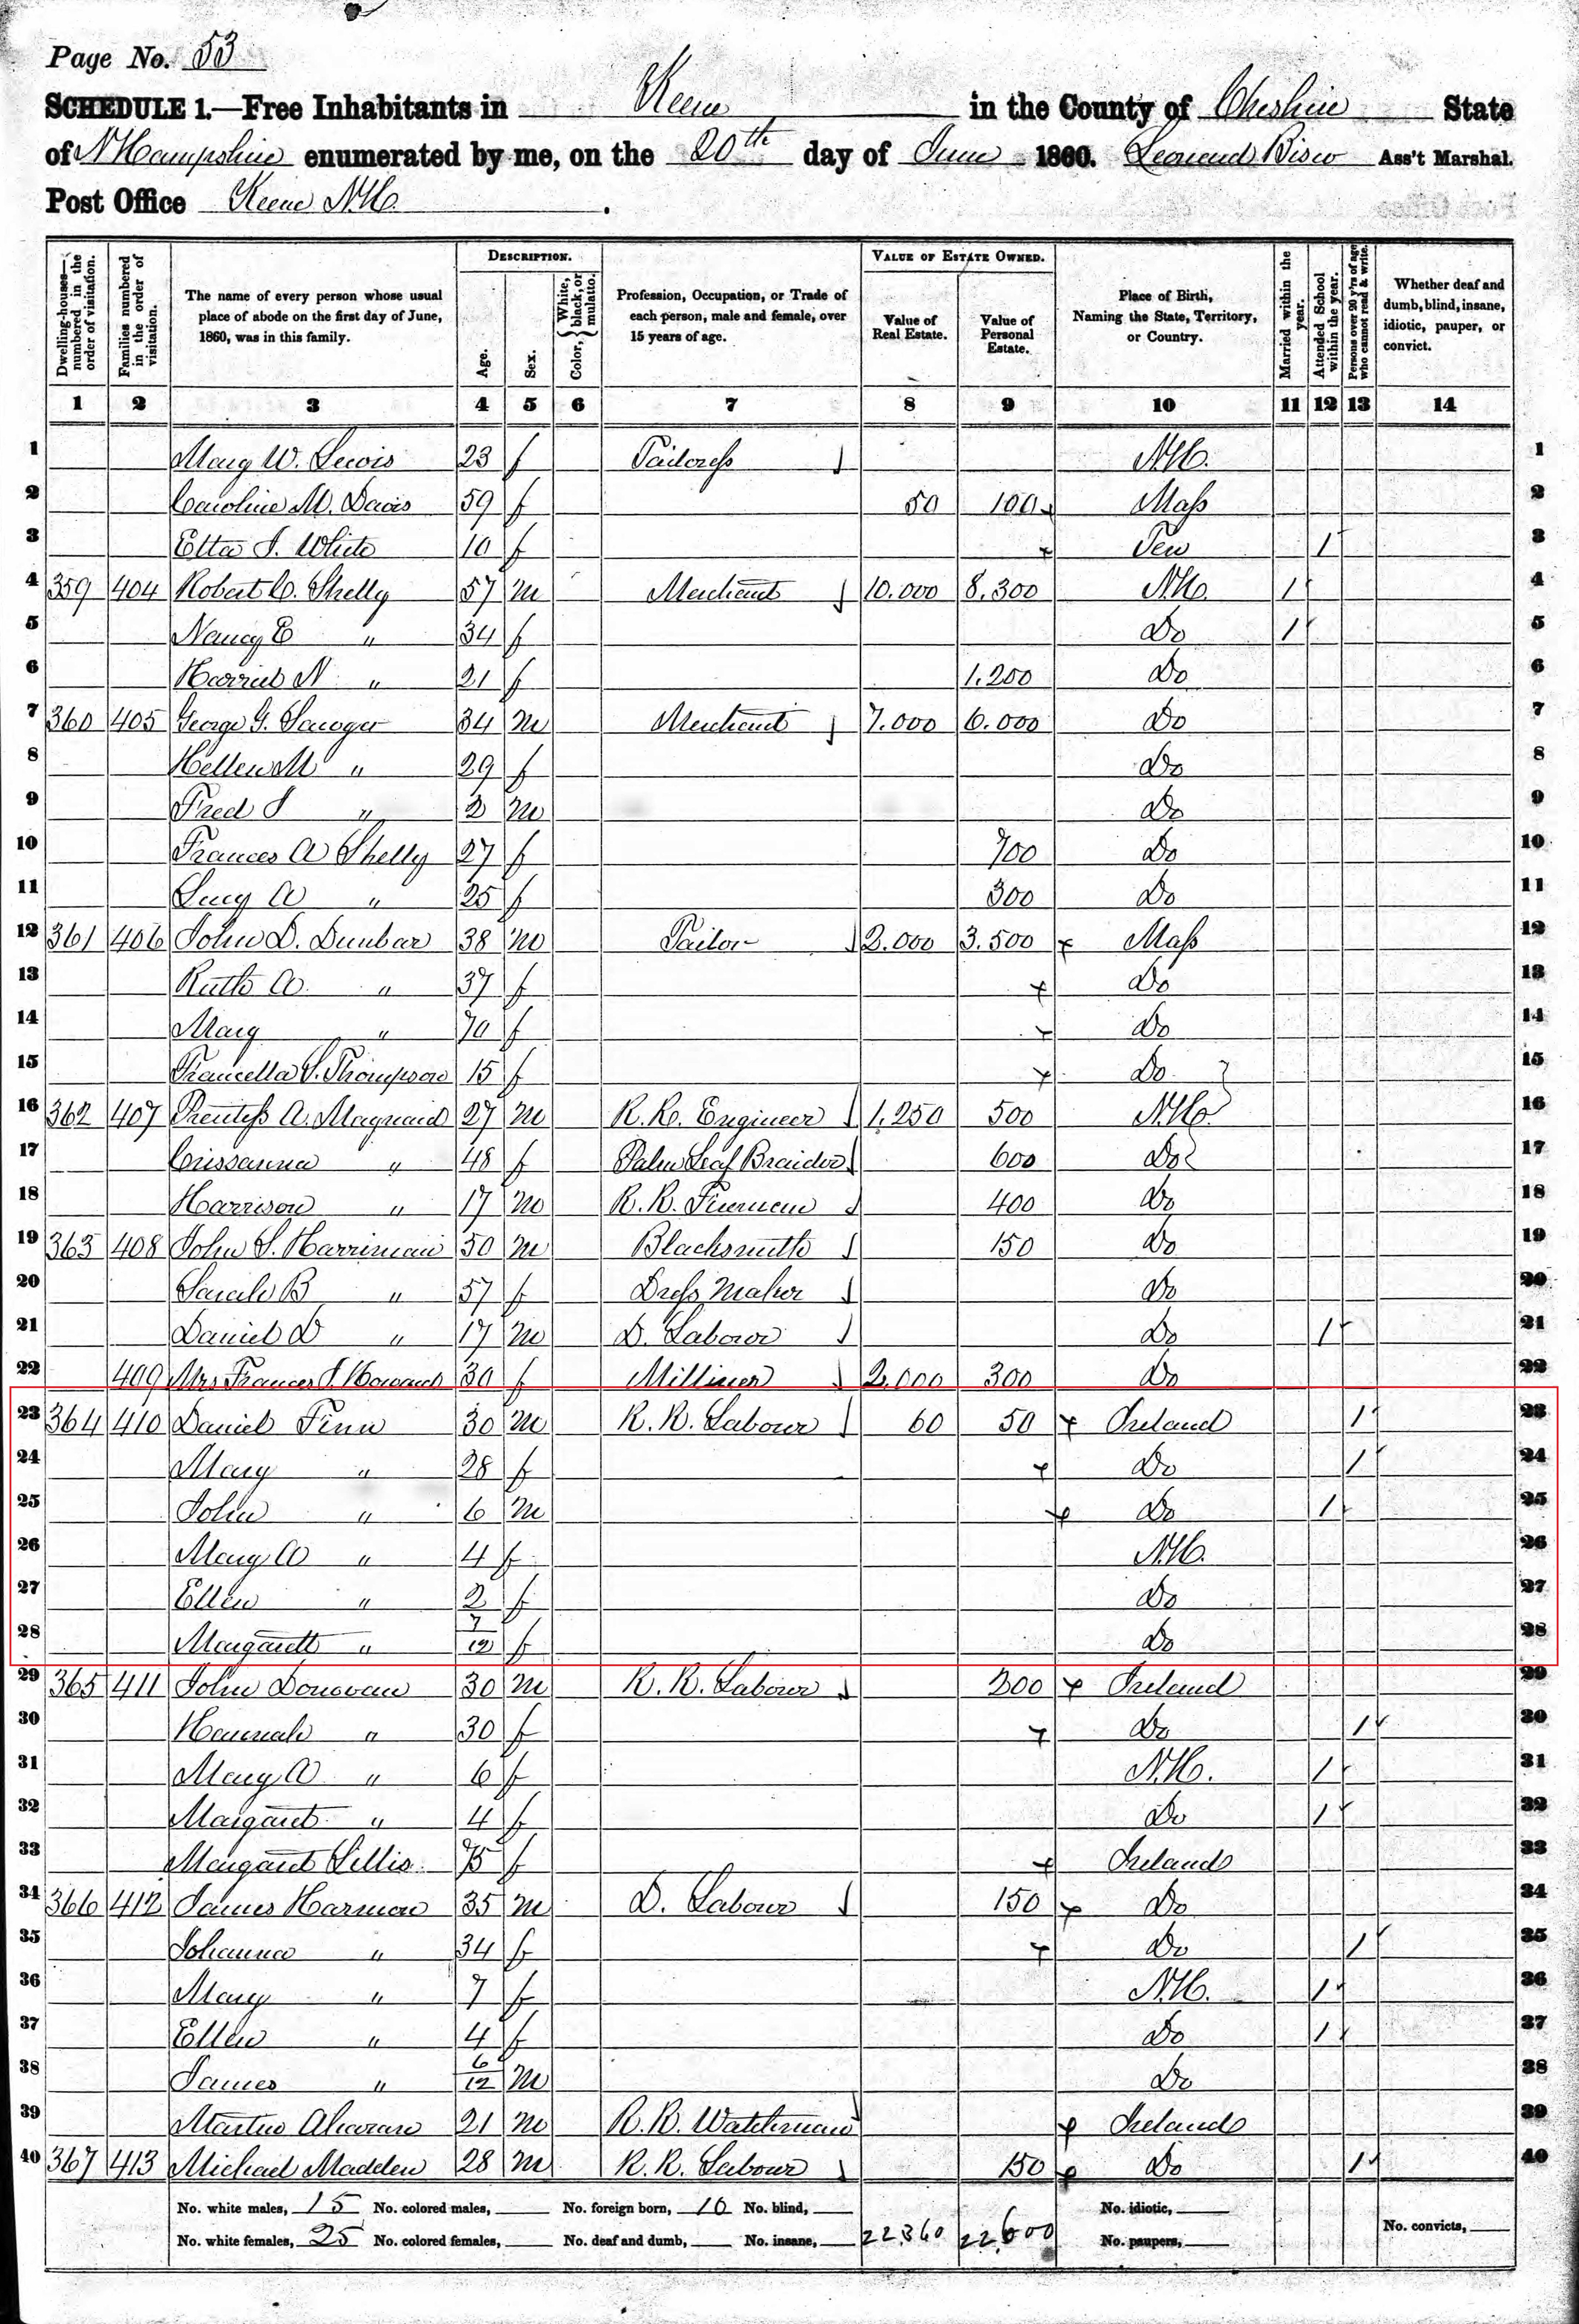 Page No. 53
SCHEDULE 1.—Free Inhabitants in Keene in the County of Cheshire State
of N Hampshire enumerated by me, on the 20th day of June 1860. Leonard Bisco Ass't Marshal.
Post Office Keene N.H.
Dwelling-houses—numbered in the order of visitation. Families numbered in the order of visitation. The name of every person whose usual place of abode on the first day of June, 1860, was in this family. DESCRIPTION. Age. Sex. Color, { White, black, or mulatto. Profession, Occupation, or Trade of each person, male and female, over 15 years of age. VALUE OF ESTATE OWNED. Value of Real Estate. Value of Personal Estate. Place of Birth, Naming the State, Territory, or Country. Married within the year. Attended School within the year. Persons over 20 y'rs of age who cannot read & write. Whether deaf and dumb, blind, insane, idiotic, pauper, or convict.
1 2 3 4 5 6 7 8 9 10 11 12 13 14
1 Mary W. Lewis 23 f Tailoress N.H. 1
2 Caroline M. Davis 59 f 50 100 Mass 2
3 Etta J. White 10 f Ten 1 3
4 359 404 Robert C. Shelly 57 m Merchant 10.000 8.300 N.H. 1 4
5 Nancy E " 34 f Do 1 5
6 Harriet N " 21 f 1.200 Do 6
7 360 405 George G. Sawyer 34 m Merchant 7.000 6.000 Do 7
8 Hellen M " 29 f Do 8
9 Fred J " 2 m Do 9
10 Frances A Shelly 27 f 700 Do 10
11 Lucy A " 25 f 300 Do 11
12 361 406 John D. Dunbar 38 m Tailor 2.000 3.500 Mass 12
13 Ruth A. " 37 f Do 13
14 Mary " 70 f Do 14
15 Francella S. Thompson 15 f Do 15
16 362 407 Prentess A. Maynard 27 m R.R. Engineer 1.250 500 N.H. 16
17 Crissanna " 48 f Palm Leaf Braider 600 Do 17
18 Harrison " 17 m R.R. Fireman 400 Do 18
19 363 408 John S. Harriman 50 m Blacksmith 150 Do 19
20 Sarah B " 57 f Dress Maker Do 20
21 Daniel D " 17 m D. Labour Do 1 21
22 409 Mrs Frances J. Howard 30 f Milliner 2.000 300 Do 22
23 364 410 Daniel Finn 30 m R.R. Labour 60 50 Ireland 1 23
24 Mary " 28 f Do 1 24
25 John " 6 m Do 1 25
26 Mary A " 4 f N.H. 26
27 Ellen " 2 f Do 27
28 Margarett " 7/12 f Do 28
29 365 411 John Donovan 30 m R.R. Labour 200 Ireland 29
30 Hannah " 30 f Do 1 30
31 Mary A " 6 f N.H. 1 31
32 Margaret " 4 f Do 1 32
33 Margaret Lillis 75 f Ireland 33
34 366 412 James Harmon 35 m D. Labour 150 Do 34
35 Johanna " 34 f Do 1 35
36 Mary " 7 f N.H. 1 36
37 Ellen " 4 f Do 1 37
38 James " 6/12 m Do 38
39 Martin 21 m R.R. Watchman Ireland 39
40 367 413 Michael Madden 28 m R.R. Labour 150 Do 1 40
No. white males, 15 No. colored males, No. foreign born, 16 No. blind, No. idiotic,
No. white females, 25 No. colored females, No. deaf and dumb, No. insane, 22.360 22.600 No. paupers, No. convicts,